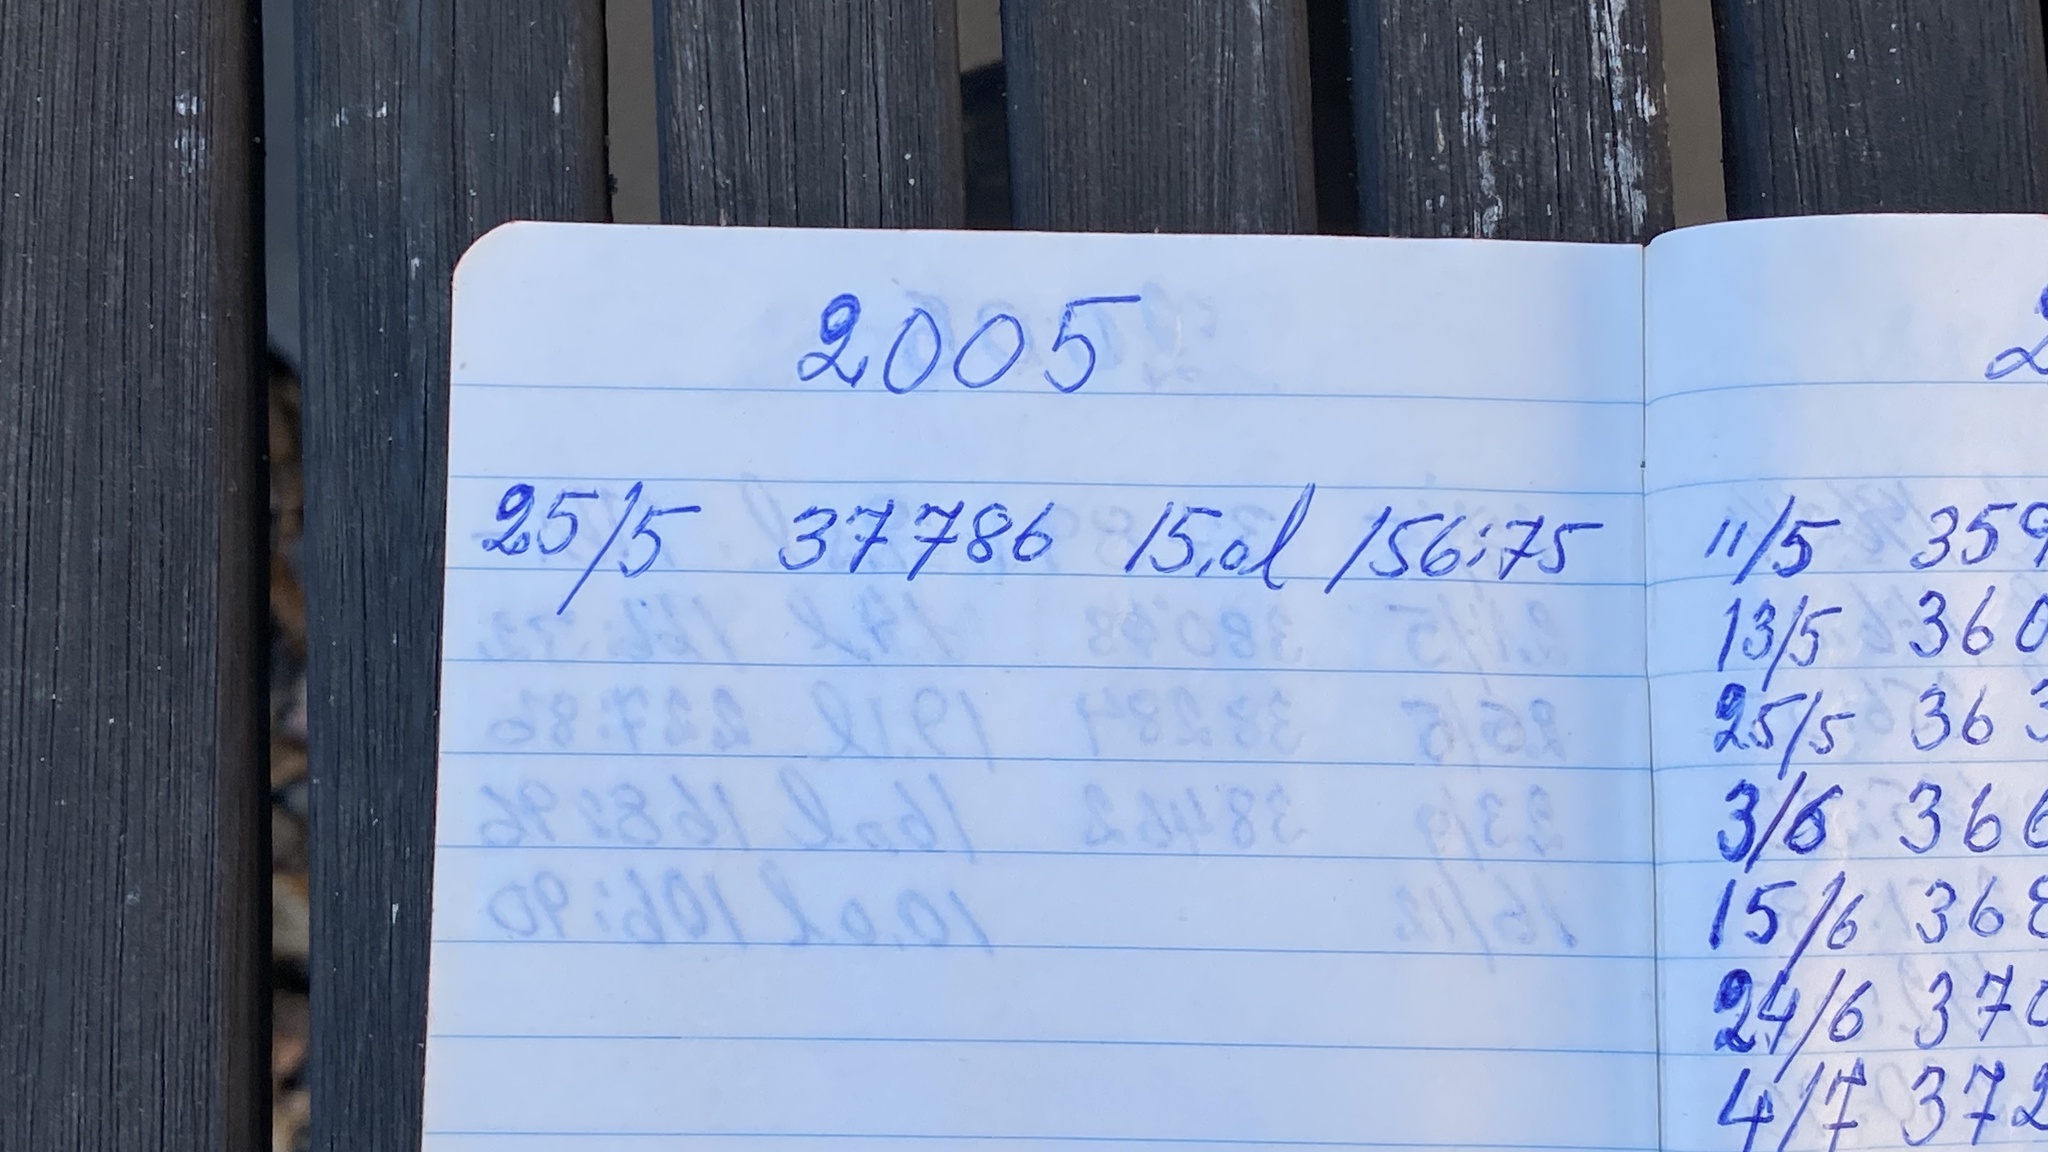 2005
25/5 37786 15,0l 156:75
11/5 359
13/5 360
25/5 363
3/6 366
15/6 368
24/6 370
4/7 372